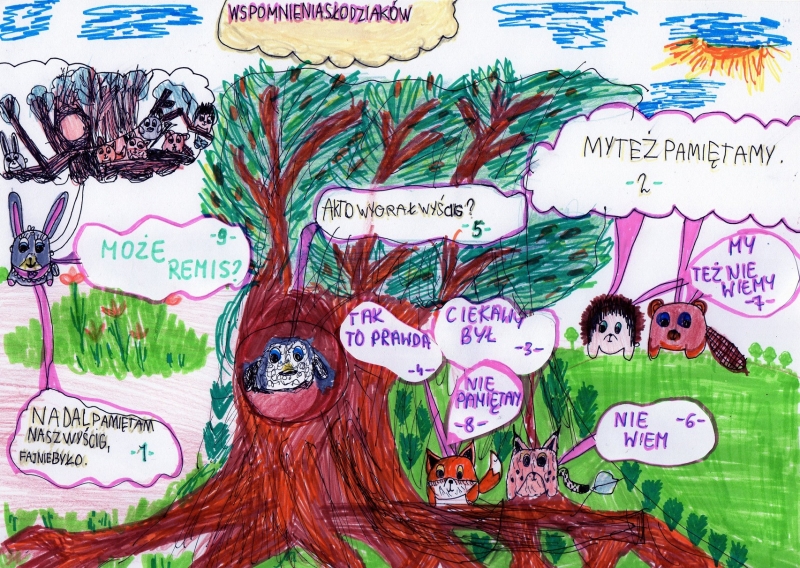 WSPOMNIENIA SŁODZIAKÓW
NADAL PAMIĘTAM
NASZ WYŚCIG,
FAJNIE BYŁO.
-1-
MY TEŻ PAMIĘTAMY.
-2-
CIEKAWY
BYŁ
-3-
TAK
TO PRAWDA
-4-
A KTO WYGRAŁ WYŚCIG?
-5-
NIE
WIEM
-6-
MY
TEŻ NIE
WIEMY
-7-
NIE
PAMIĘTAM
-8-
-9-
MOŻE
REMIS?